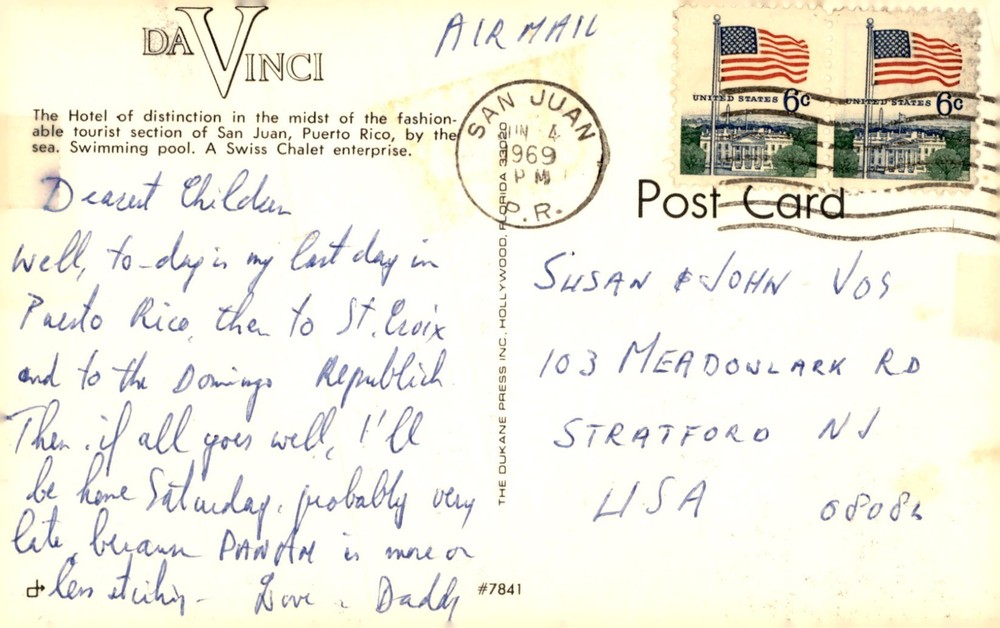 DA VINCI
The Hotel of distinction in the midst of the fashion-
able tourist section of San Juan, Puerto Rico, by the
sea. Swimming pool. A Swiss Chalet enterprise.
AIR MAIL
SAN JUAN
JUN 4
1969
PM
P.R.
UNITED STATES 6c
UNITED STATES 6c
Post Card
Dearest Children
Well, to-day is my last day in
Puerto Rico, then to St. Croix
and to the Domingo Republich.
Then if all goes well, I'll
be home Saturday, probably very
late, because PANAM is more or
less striking - Love Daddy
THE DUKANE PRESS INC. HOLLYWOOD, FLORIDA 33020
#7841
SUSAN & JOHN VOS
103 MEADOWLARK RD
STRATFORD NJ
USA 08084